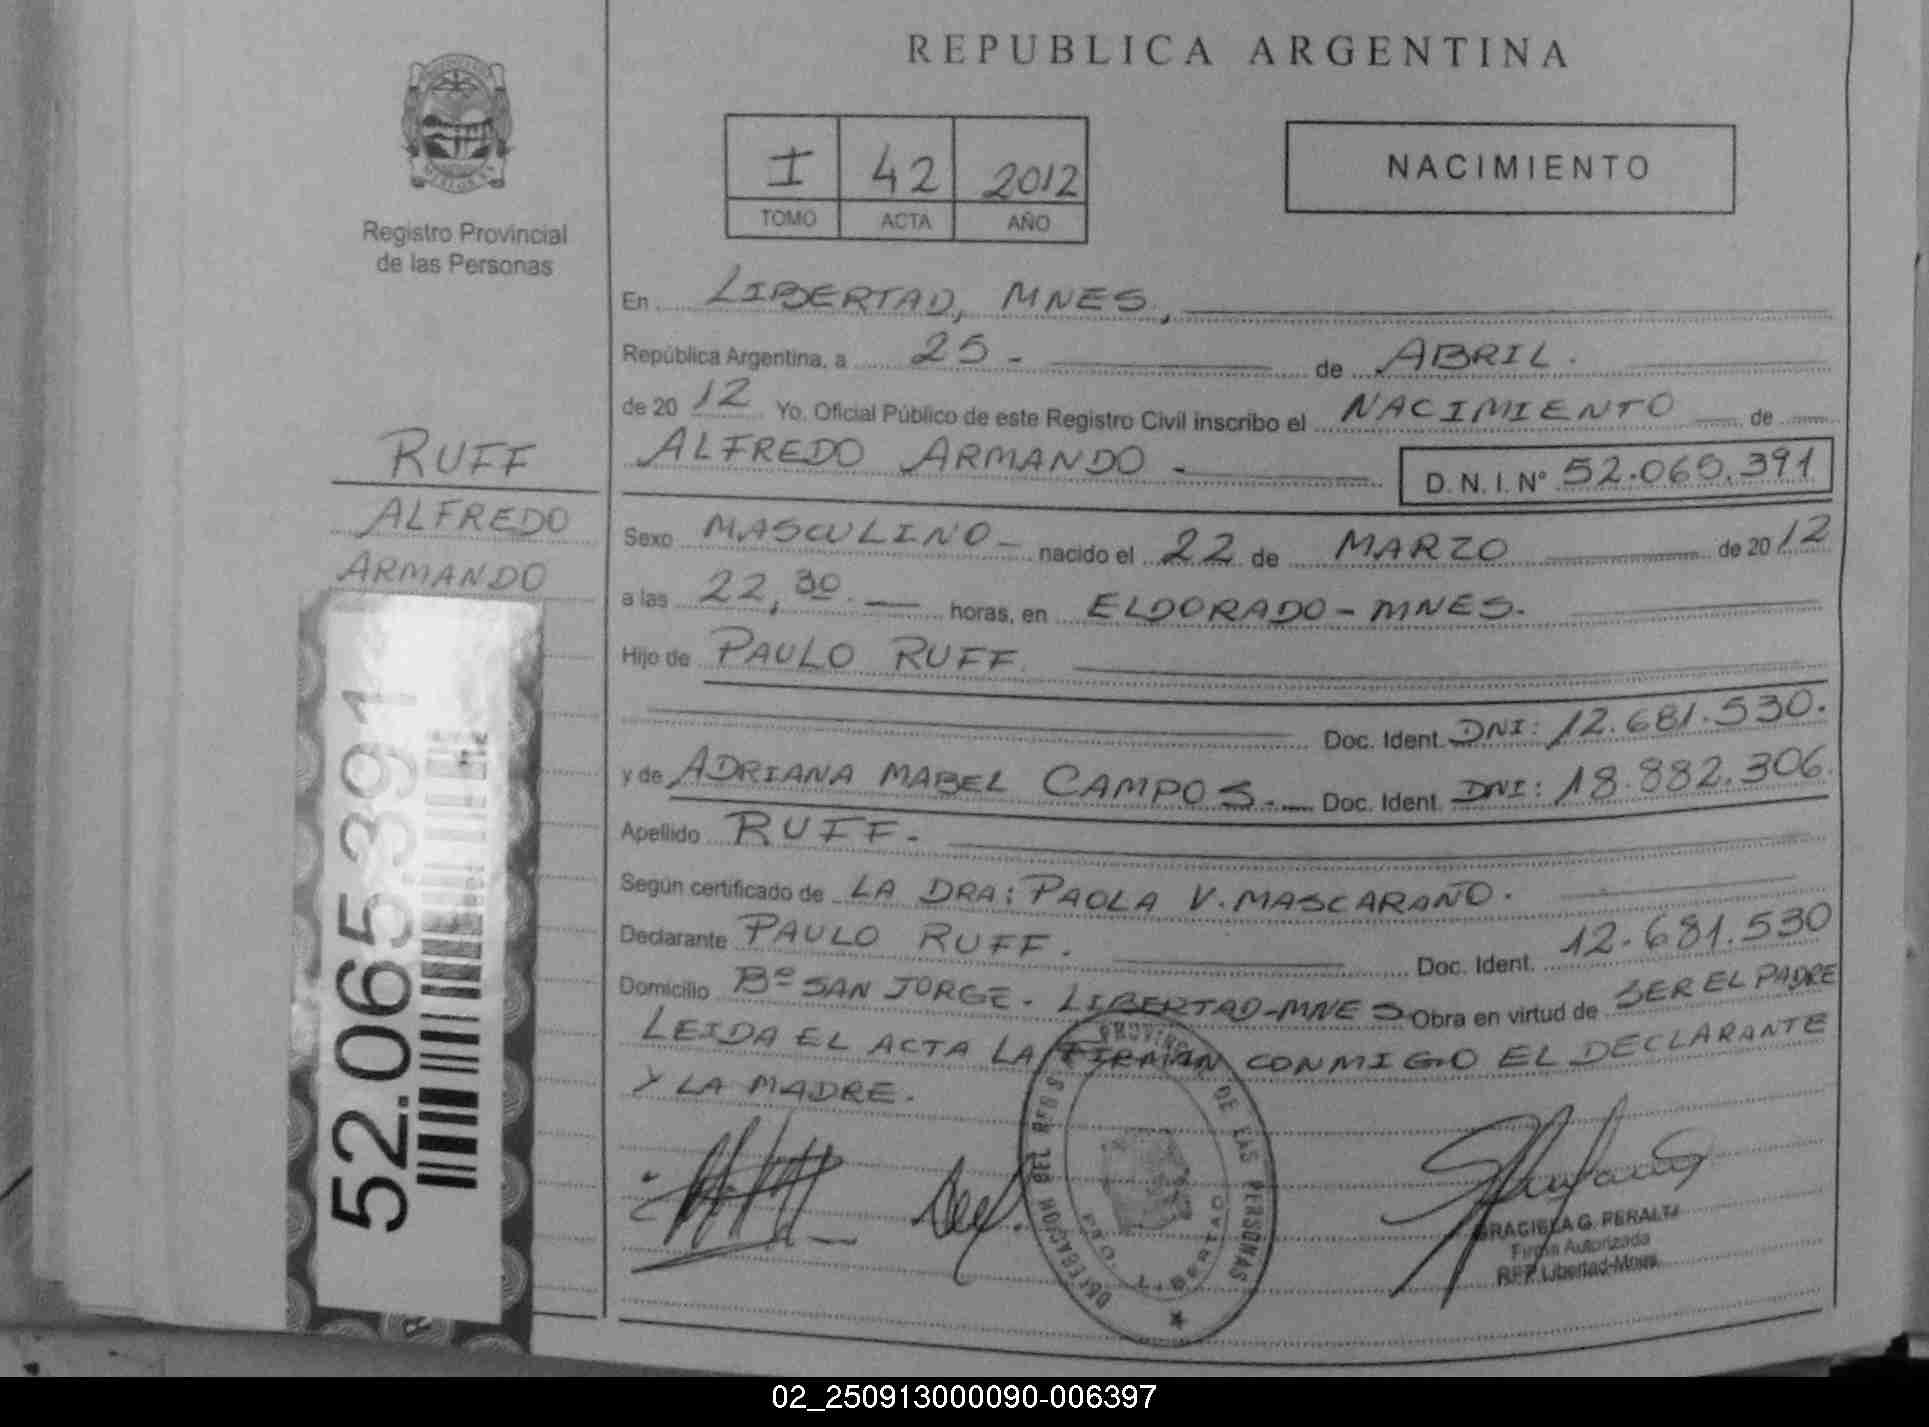 REPUBLICA ARGENTINA
I 42 2012
TOMO ACTA AÑO
NACIMIENTO
Registro Provincial
de las Personas
RUFF
ALFREDO
ARMANDO
52.065.391
En LIBERTAD, MNES.,
República Argentina, a 25 - de ABRIL.
de 2012 Yo. Oficial Público de este Registro Civil inscribo el NACIMIENTO de
ALFREDO ARMANDO - D. N. I. N° 52.065.391
Sexo MASCULINO - nacido el 22 de MARZO de 2012
a las 22,30. horas, en ELDORADO - MNES.
Hijo de PAULO RUFF.
Doc. Ident. DNI: 12.681.530.
y de ADRIANA MABEL CAMPOS. Doc. Ident. DNI: 18.882.306.
Apellido RUFF.
Según certificado de LA DRA: PAOLA V. MASCARAÑO.
Declarante PAULO RUFF. Doc. Ident. 12.681.530
Domicilio B° SAN JORGE. LIBERTAD-MNES Obra en virtud de SER EL PADRE
LEIDA EL ACTA LA FIRMAN CONMIGO EL DECLARANTE
Y LA MADRE.
DE LAS PERSONAS
LIBERTAD
GRACIELA G. PERALTA
Firma Autorizada
RPP Libertad-Mnes.
02_250913000090-006397